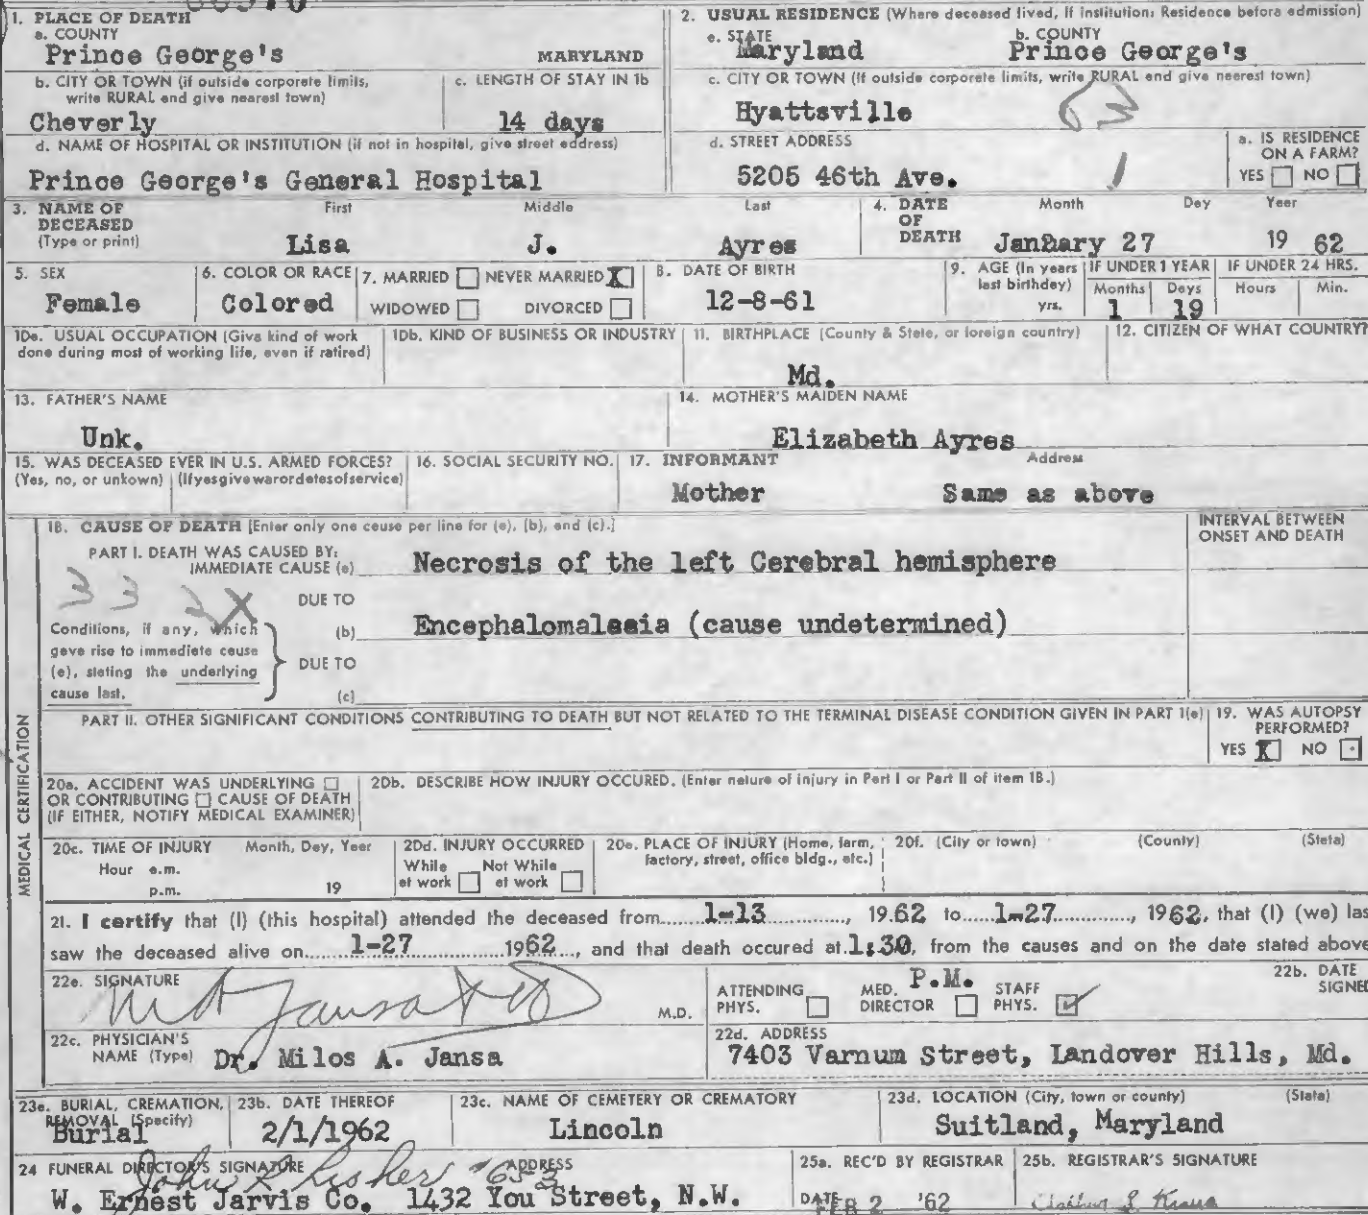 1. PLACE OF DEATH
a. COUNTY
Prince George's MARYLAND
b. CITY OR TOWN (if outside corporate limits, write RURAL and give nearest town)
Cheverly
c. LENGTH OF STAY IN 1b
14 days
d. NAME OF HOSPITAL OR INSTITUTION (if not in hospital, give street address)
Prince George's General Hospital
2. USUAL RESIDENCE (Where deceased lived, If institution: Residence before admission)
a. STATE
Maryland
b. COUNTY
Prince George's
c. CITY OR TOWN (If outside corporate limits, write RURAL and give nearest town)
Hyattsville
d. STREET ADDRESS
5205 46th Ave.
e. IS RESIDENCE ON A FARM?
YES NO
3. NAME OF DECEASED (Type or print)
First Middle Last
Lisa J. Ayres
4. DATE OF DEATH
Month Day Year
January 27 19 62
5. SEX
Female
6. COLOR OR RACE
Colored
7. MARRIED NEVER MARRIED X
WIDOWED DIVORCED
8. DATE OF BIRTH
12-8-61
9. AGE (In years last birthday)
yrs.
IF UNDER 1 YEAR
Months Days
1 19
IF UNDER 24 HRS.
Hours Min.
10a. USUAL OCCUPATION (Give kind of work done during most of working life, even if retired)
10b. KIND OF BUSINESS OR INDUSTRY
11. BIRTHPLACE (County & State, or foreign country)
Md.
12. CITIZEN OF WHAT COUNTRY?
13. FATHER'S NAME
Unk.
14. MOTHER'S MAIDEN NAME
Elizabeth Ayres
15. WAS DECEASED EVER IN U.S. ARMED FORCES?
(Yes, no, or unkown) (Ifyesgivewarordatesofservice)
16. SOCIAL SECURITY NO.
17. INFORMANT Address
Mother Same as above
18. CAUSE OF DEATH [Enter only one cause per line for (a), (b), and (c).]
INTERVAL BETWEEN ONSET AND DEATH
PART I. DEATH WAS CAUSED BY:
IMMEDIATE CAUSE (a) Necrosis of the left Cerebral hemisphere
332X
DUE TO
Conditions, if any, which gave rise to immediate cause (a), stating the underlying cause last.
(b) Encephalomalasia (cause undetermined)
DUE TO
(c)
PART II. OTHER SIGNIFICANT CONDITIONS CONTRIBUTING TO DEATH BUT NOT RELATED TO THE TERMINAL DISEASE CONDITION GIVEN IN PART 1(a)
19. WAS AUTOPSY PERFORMED?
YES X NO
20a. ACCIDENT WAS UNDERLYING
OR CONTRIBUTING CAUSE OF DEATH
(IF EITHER, NOTIFY MEDICAL EXAMINER)
20b. DESCRIBE HOW INJURY OCCURED. (Enter nature of injury in Part I or Part II of item 18.)
20c. TIME OF INJURY Month, Day, Year
Hour a.m.
p.m. 19
20d. INJURY OCCURRED
While at work Not While at work
20e. PLACE OF INJURY (Home, farm, factory, street, office bldg., etc.)
20f. (City or town) (County) (State)
MEDICAL CERTIFICATION
21. I certify that (I) (this hospital) attended the deceased from 1-13, 19.62 to 1-27, 1962, that (I) (we) las
saw the deceased alive on 1-27 1962, and that death occured at 1:30, from the causes and on the date stated above
P.M.
22a. SIGNATURE
M A Jansa M.D.
ATTENDING PHYS. MED. DIRECTOR STAFF PHYS.
22b. DATE SIGNED
22c. PHYSICIAN'S NAME (Type)
Dr. Milos A. Jansa
22d. ADDRESS
7403 Varnum Street, Landover Hills, Md.
23a. BURIAL, CREMATION, REMOVAL (Specify)
Burial
23b. DATE THEREOF
2/1/1962
23c. NAME OF CEMETERY OR CREMATORY
Lincoln
23d. LOCATION (City, town or county) (State)
Suitland, Maryland
24 FUNERAL DIRECTOR'S SIGNATURE ADDRESS
John R Fisher #653
W. Ernest Jarvis Co. 1432 You Street, N.W.
25a. REC'D BY REGISTRAR
DATE FEB 2 '62
25b. REGISTRAR'S SIGNATURE